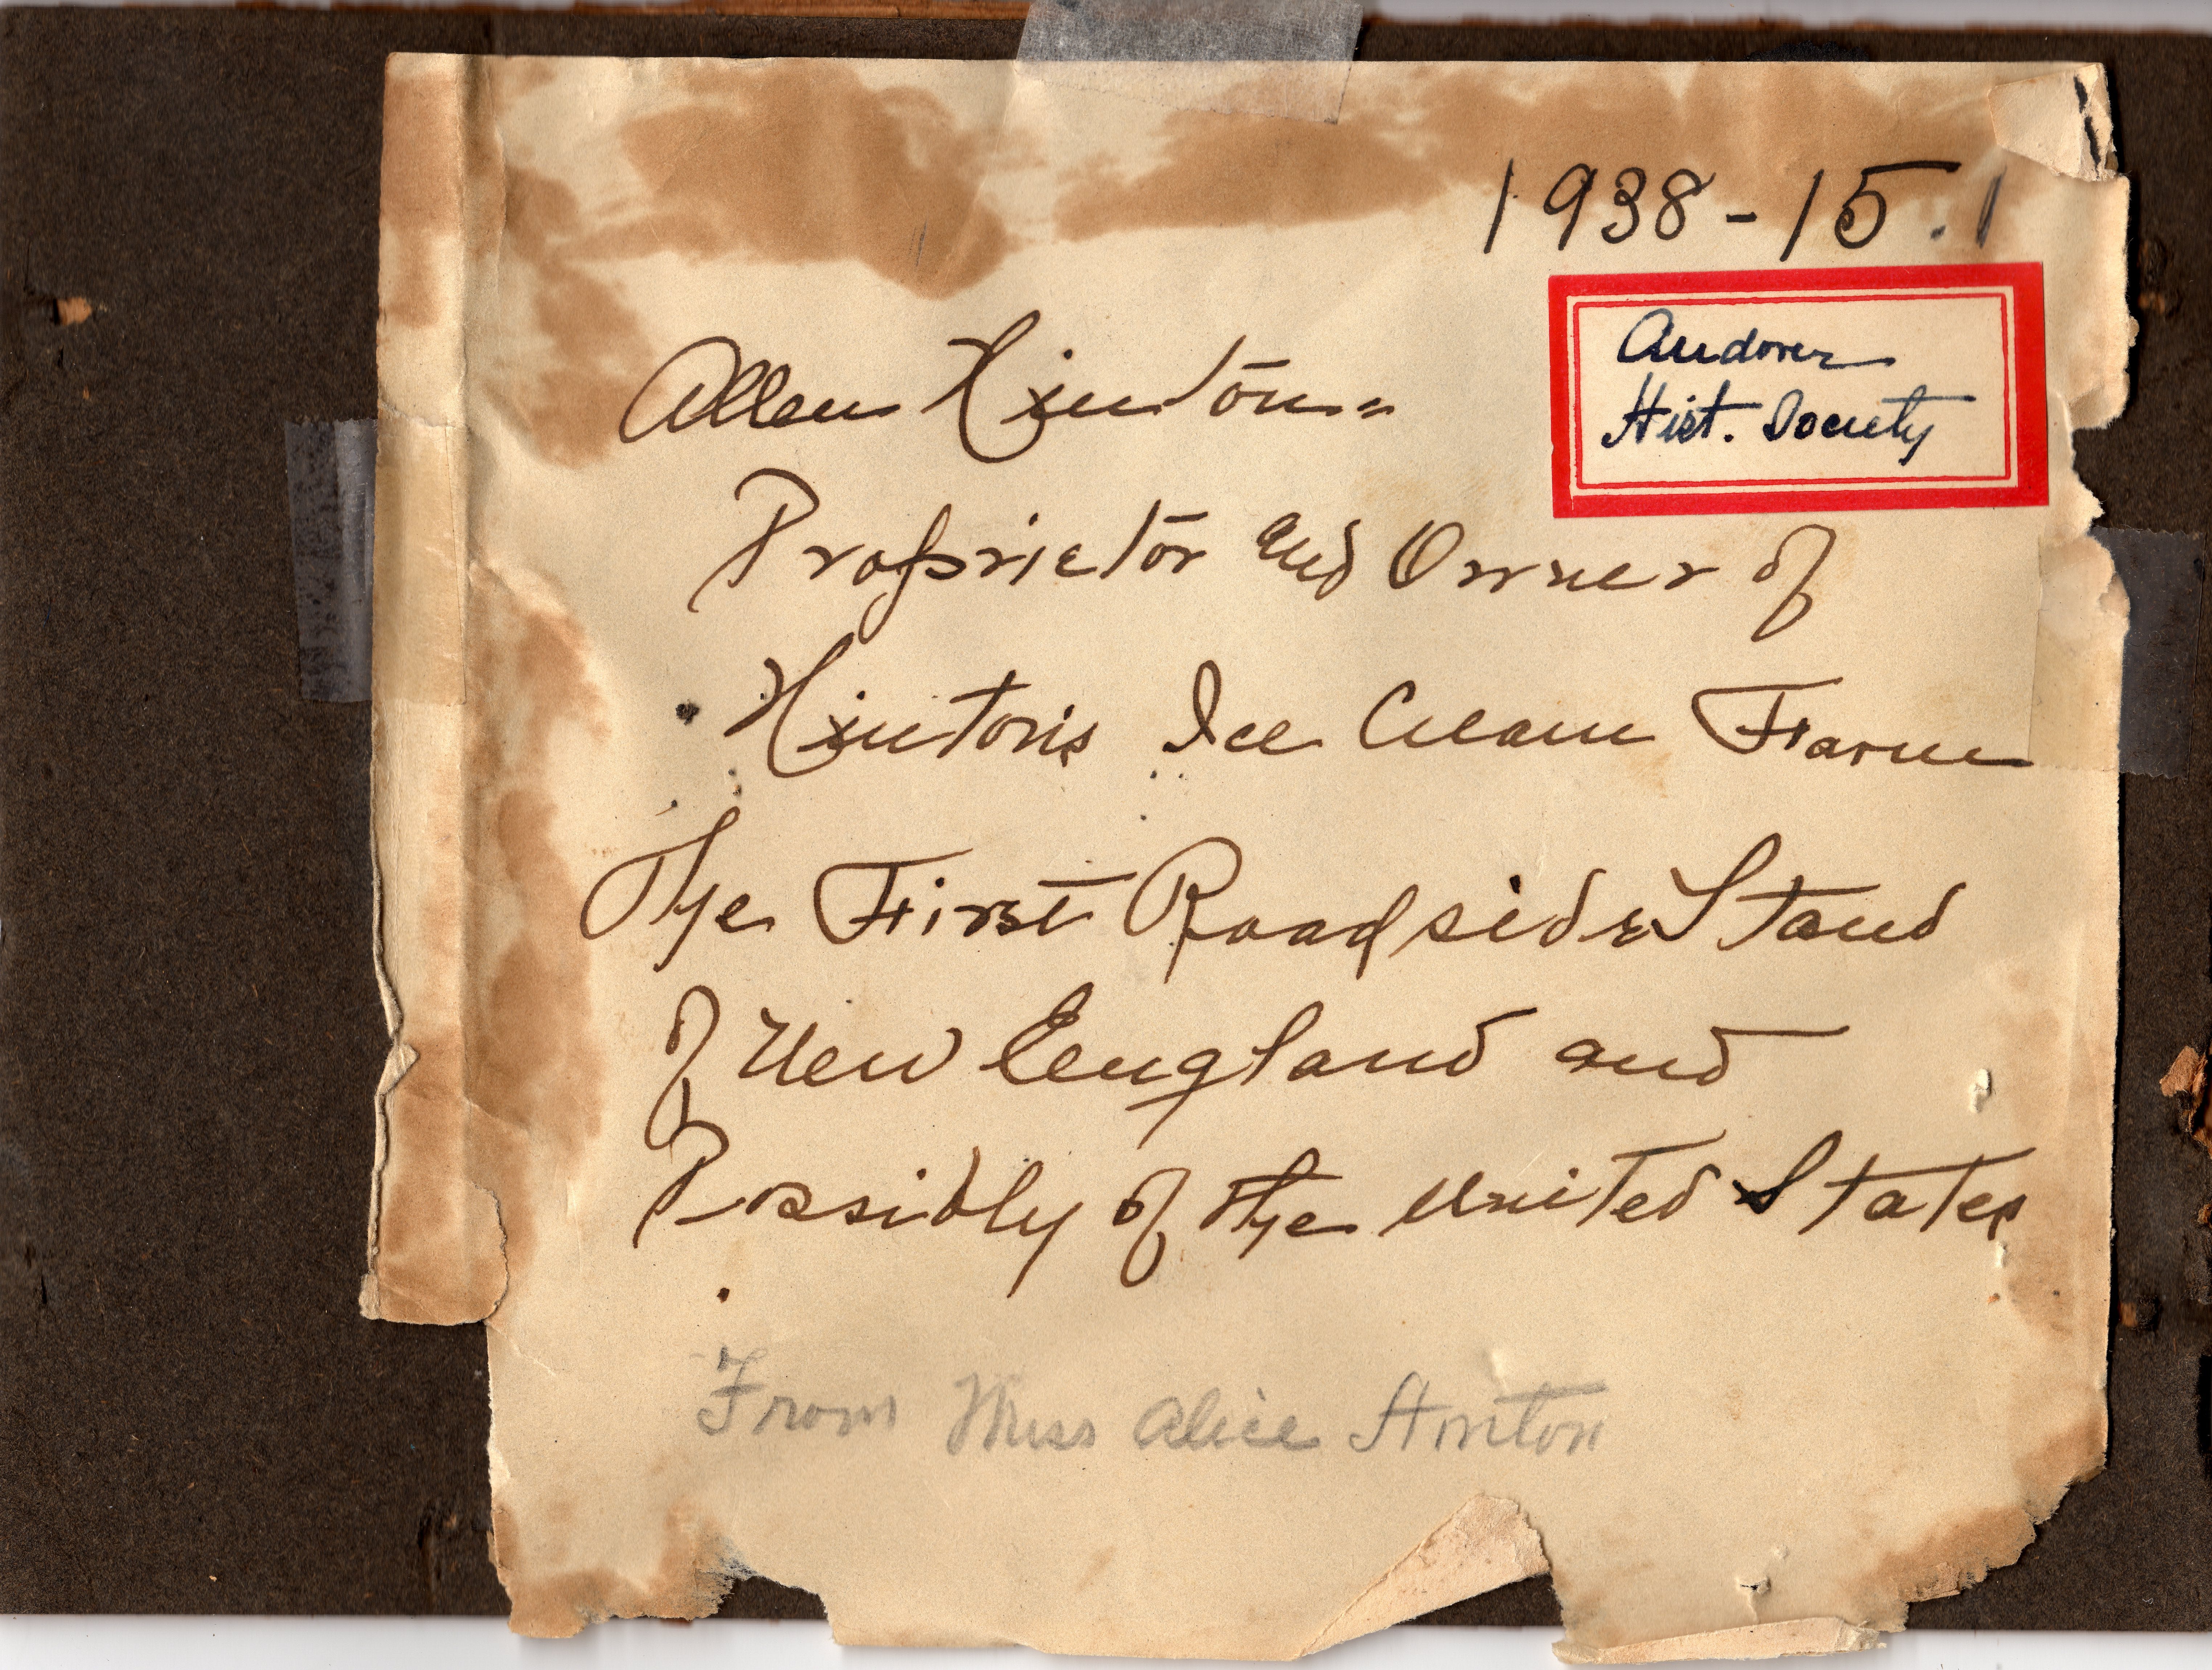 1938-15.1
Andover
Hist. Society
Allen Hinton=
Proprietor and Owner of
Hinton's Ice Cream Farm
The First Roadside Stand
of New England and
Possibly of the United States
From Miss Alice Hinton